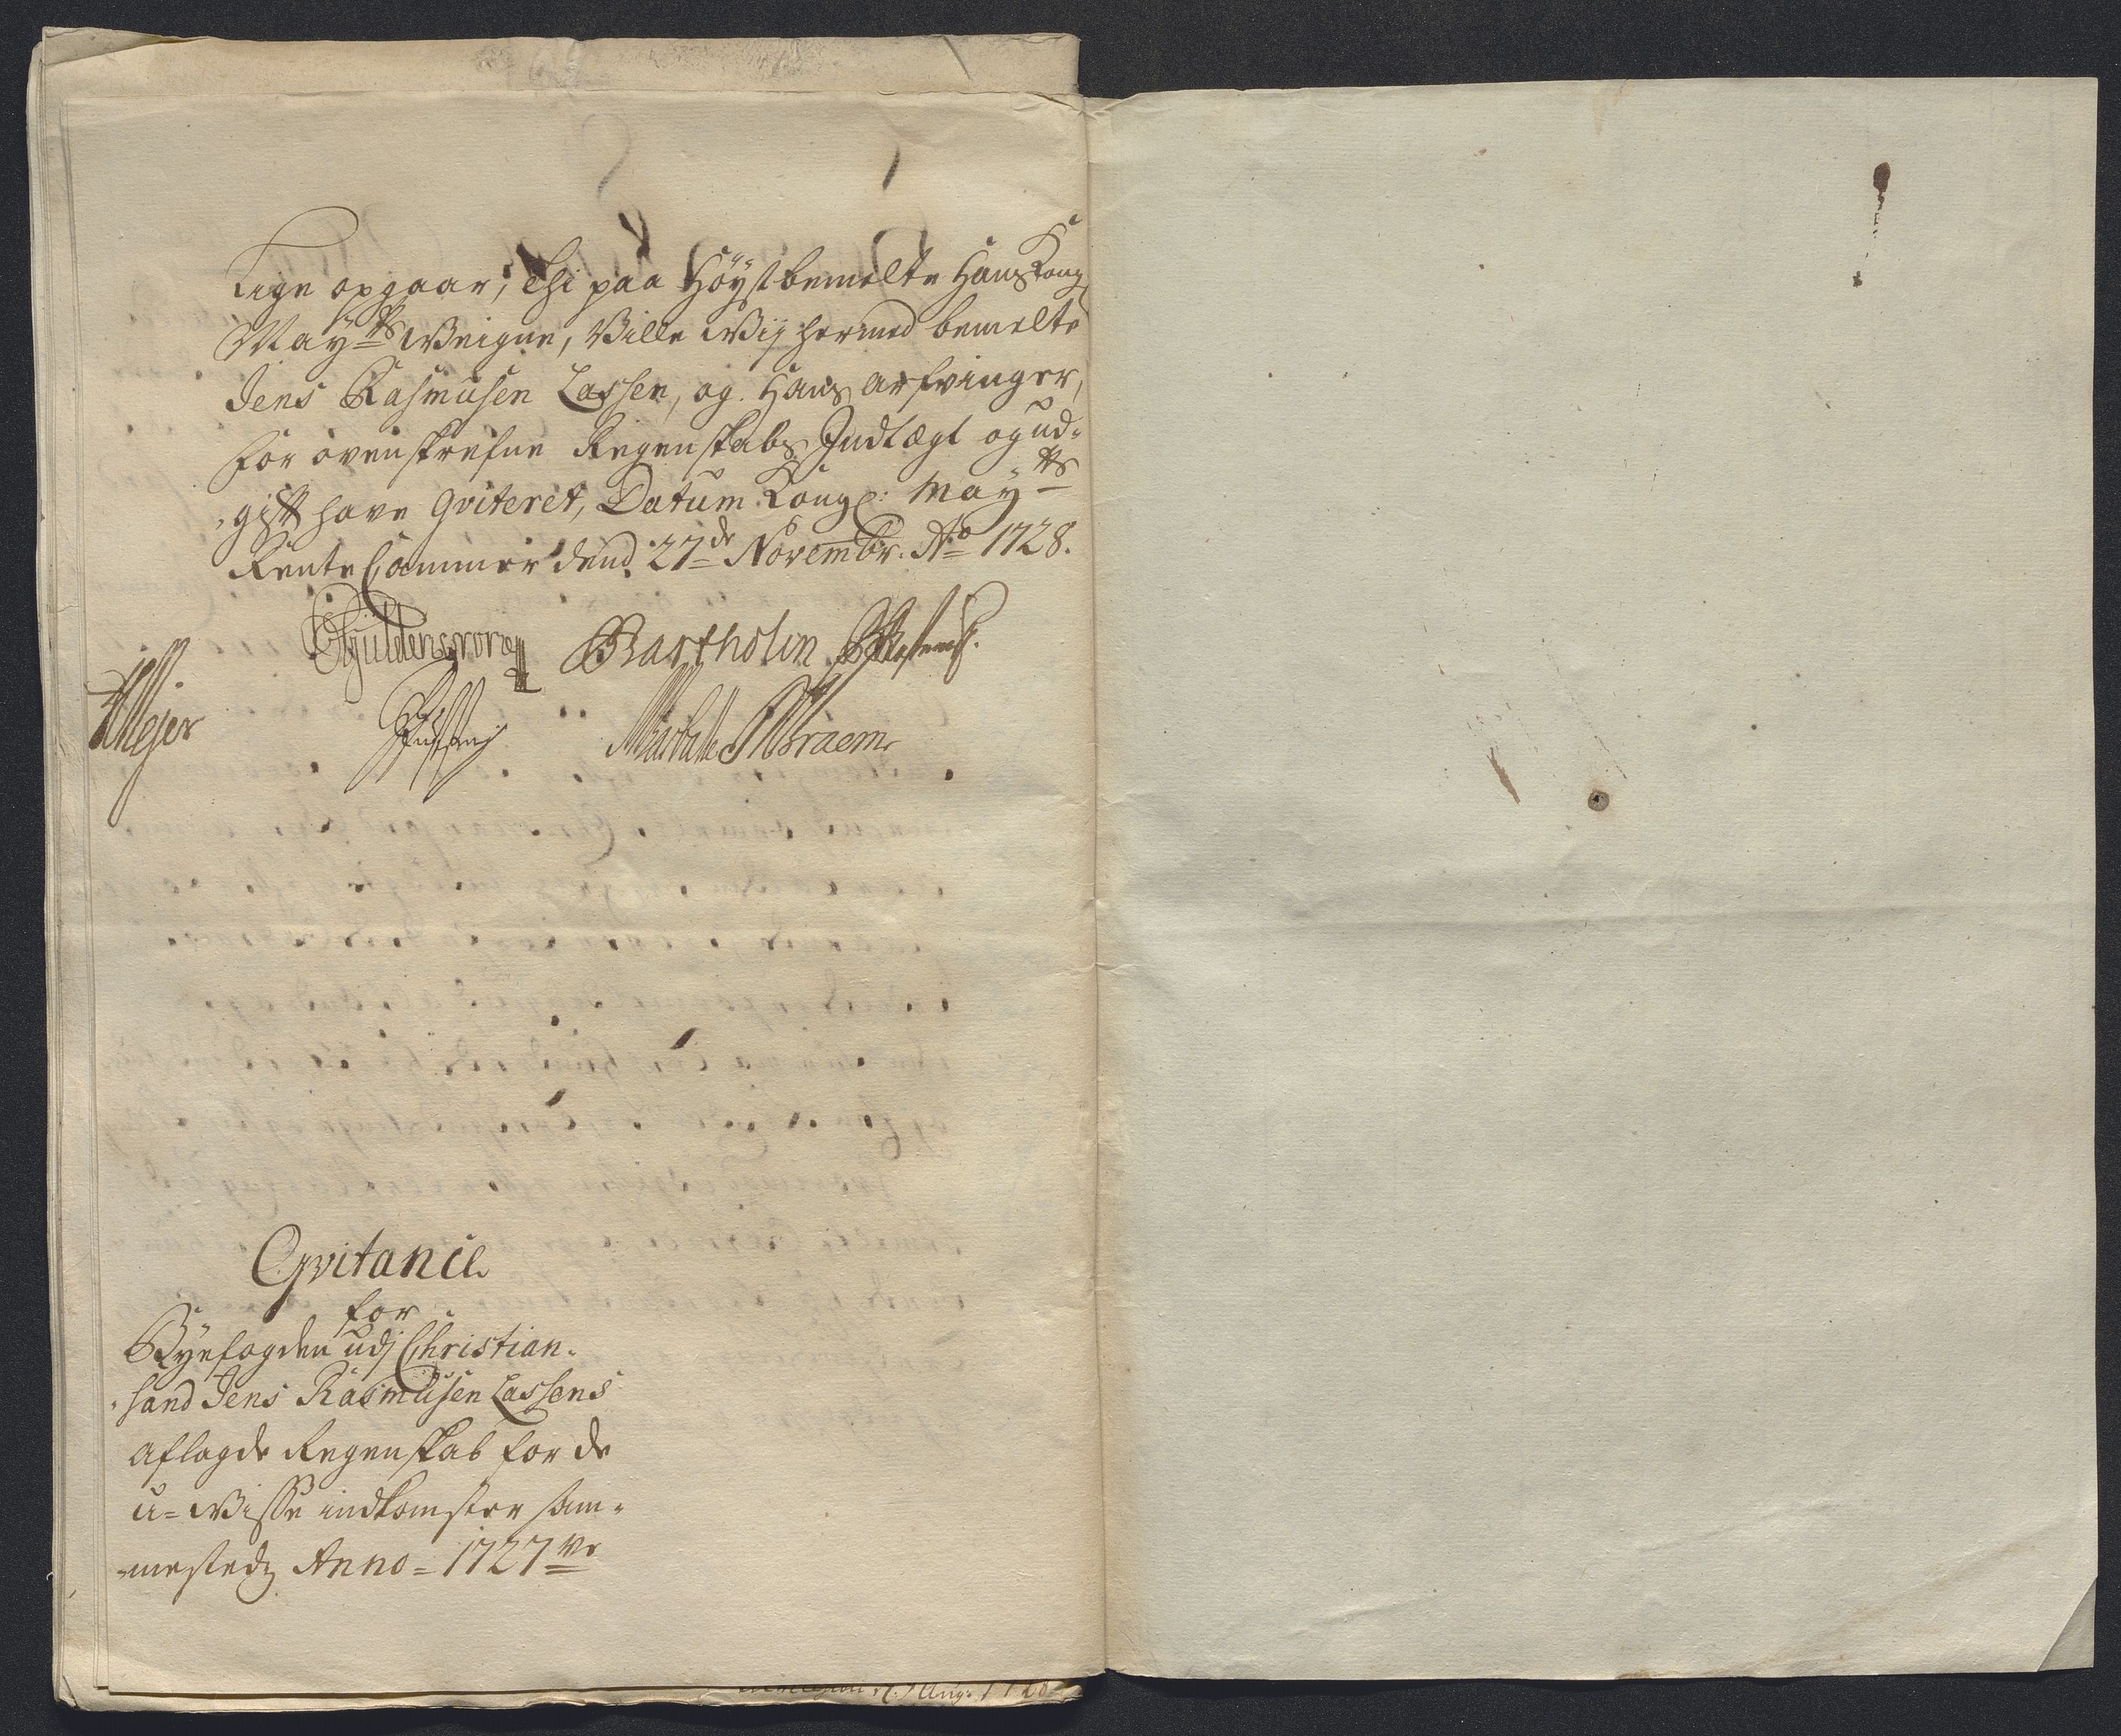 Lige opgaar; Thi paa Höystbemelte Hans Kong
May:ts Weigne, Ville Wij hermed bemelte
Jens Rasmusen Lassen, og Hans arfvinger,
for ovenskrefne Regenskabs Indtægt og ud-
gift have Qviteret, Datum Kongl: May:ts
Rente Cammer dend 27de Novembr: Ao 1728.
Gyldensparre Bartholin
Mejer Braem
Qvitance
for
Byefogden udj Christian-
sand Jens Rasmusen Lassens
aflagde Regenskab for de
u-Wisse indkomster sam-
mesteds Anno 1727
Aug: 1728